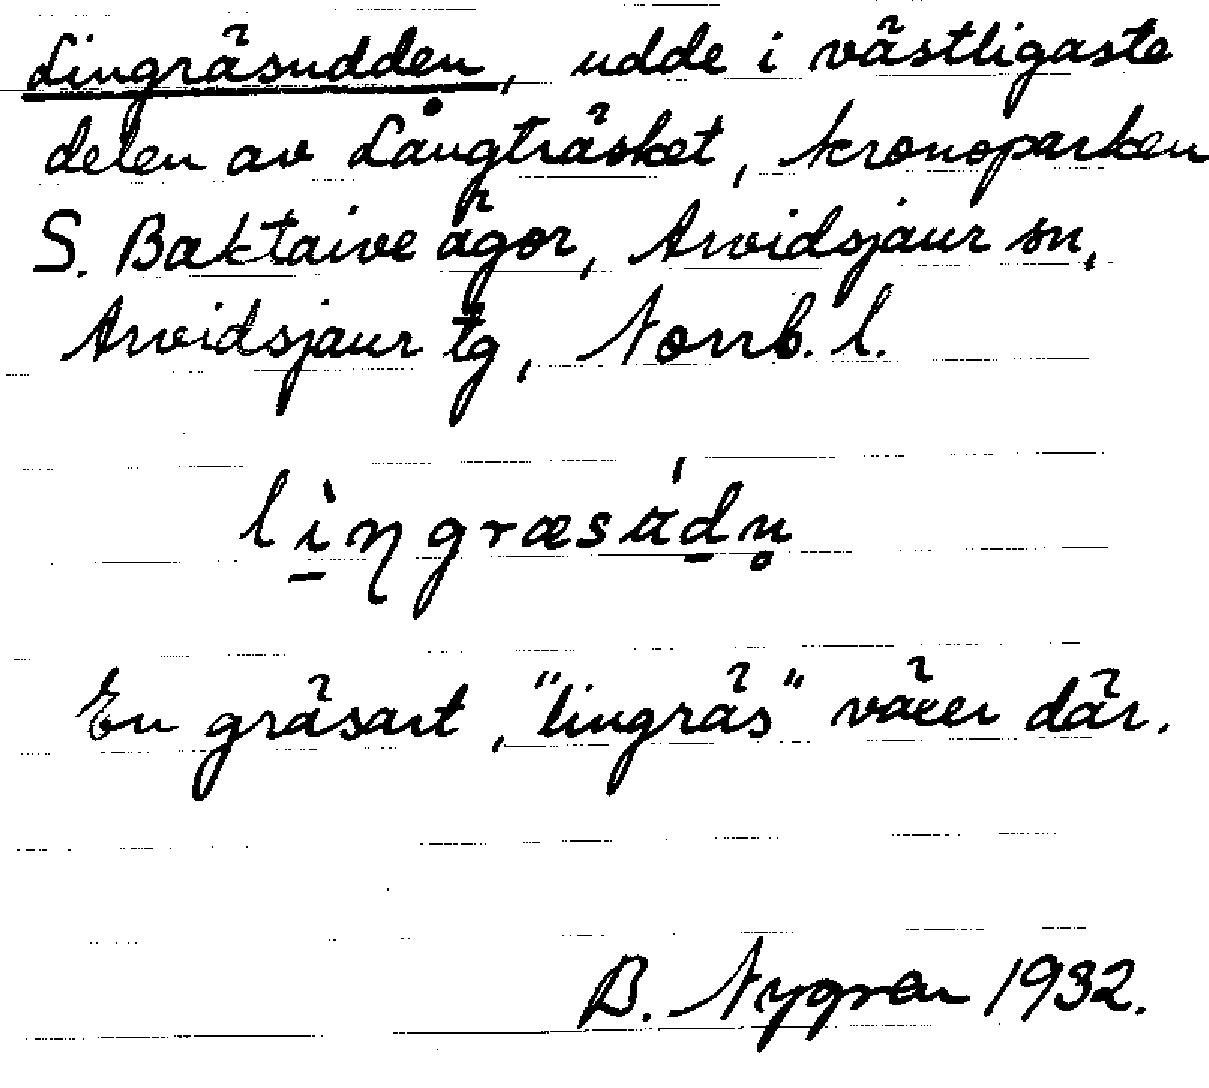 Lingräsudden, udde i västligaste
delen av Långträsket, kronoparken
S. Baktaive ägor, Arvidsjaur sn,
Arvidsjaur tg, Norrb. l.
lìŋgræsúdn̥
En gräsart, "lingräs" växer där.
B. Nygren 1932.